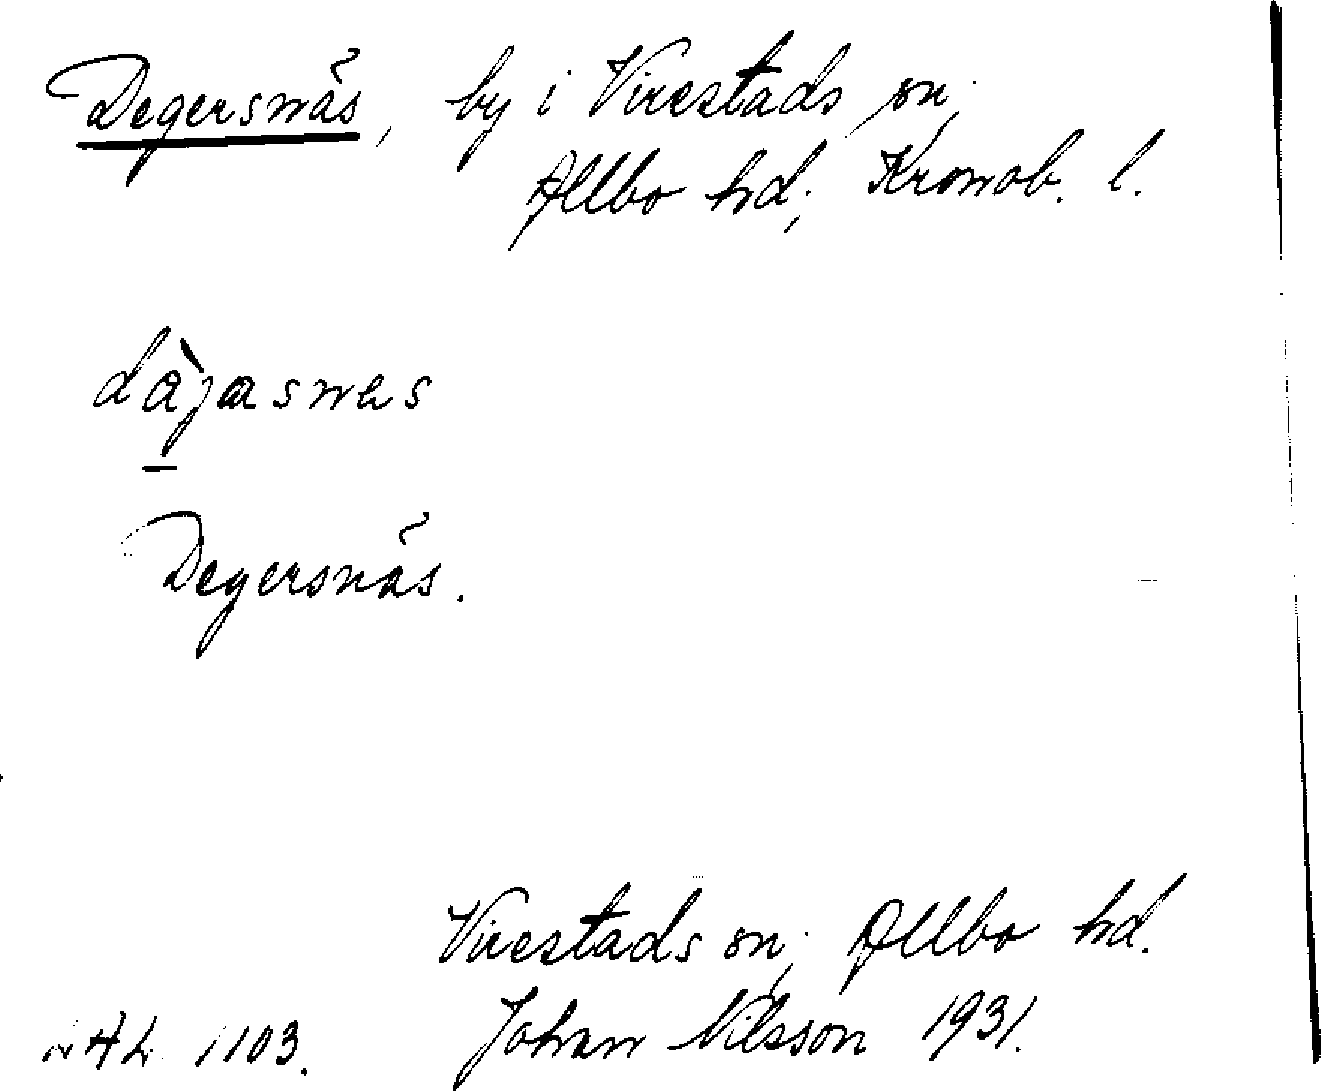 Degersnäs, by i Virestads sn,
Allbo hd, Kronob. l.
dàjasnes
Degersnäs.
Virestads sn, Allbo hd.
1103. Johan Nilsson 1931.